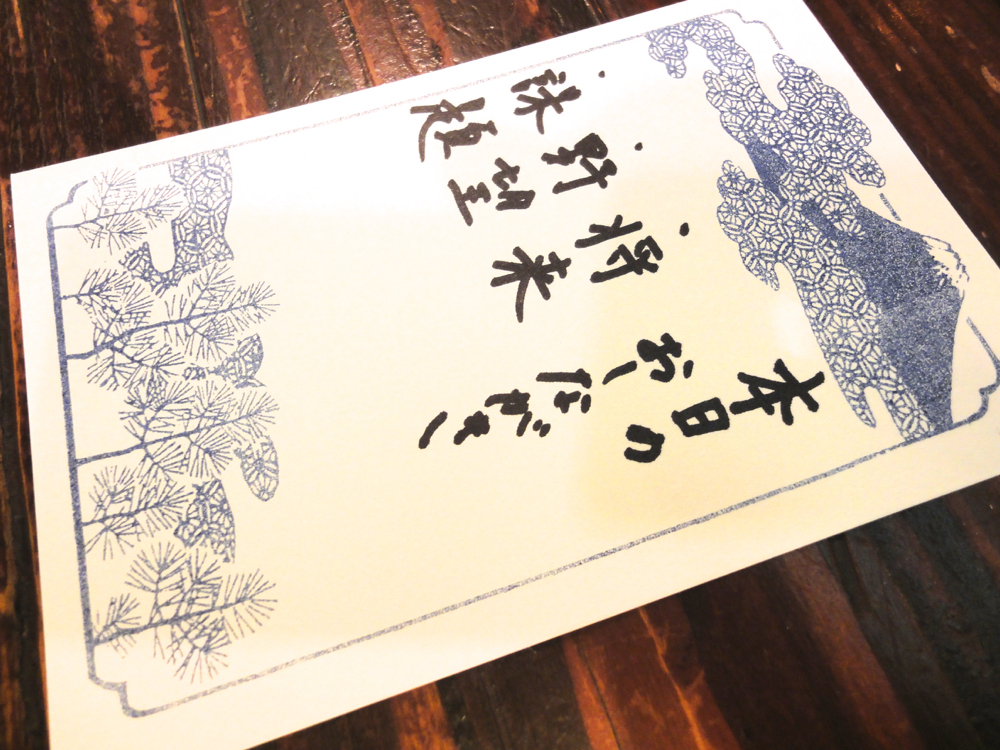 本日の
おしながき
・将来
・野望
・課題